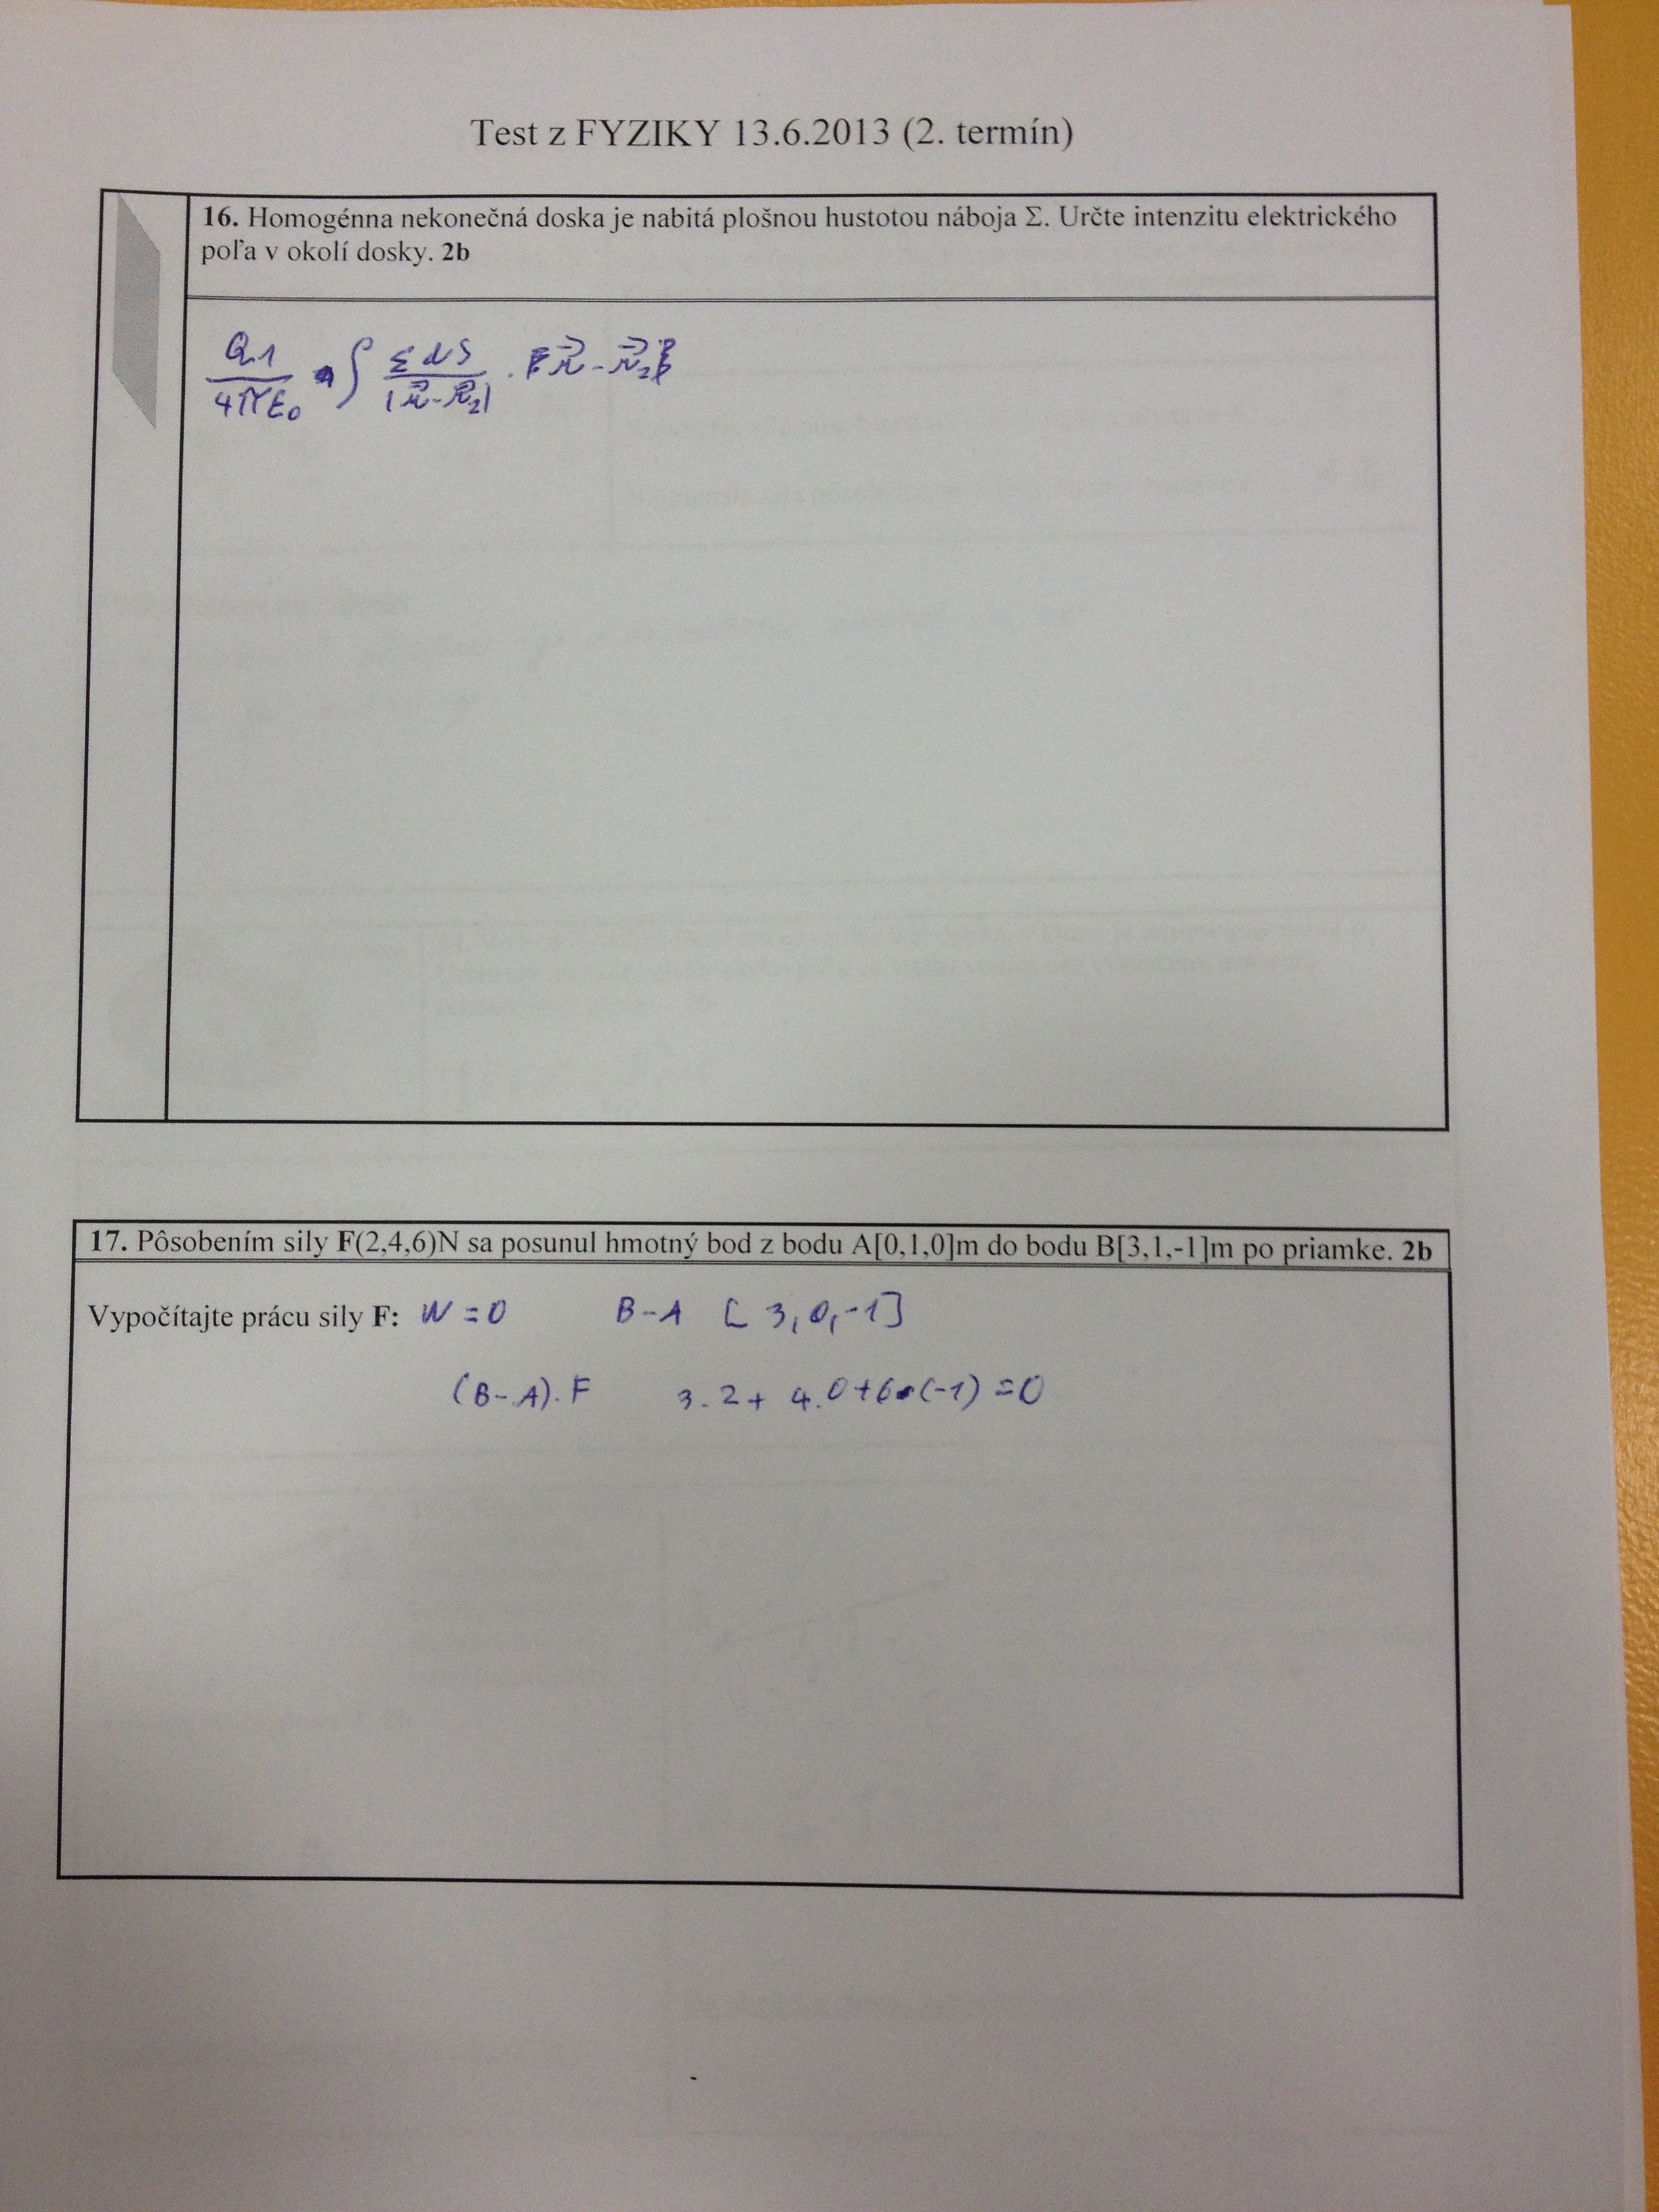 Test z FYZIKY 13.6.2013 (2. termín)
16. Homogénna nekonečná doska je nabitá plošnou hustotou náboja Σ. Určte intenzitu elektrického
poľa v okolí dosky. 2b
Q1/4πε₀ ∫ Σ dS/|r⃗-r⃗₂| . r⃗-r⃗₂
17. Pôsobením sily F(2,4,6)N sa posunul hmotný bod z bodu A[0,1,0]m do bodu B[3,1,-1]m po priamke. 2b
Vypočítajte prácu sily F: W = 0 B-A [3,0,-1]
(B-A).F 3.2+ 4.0+6.(-1) =0